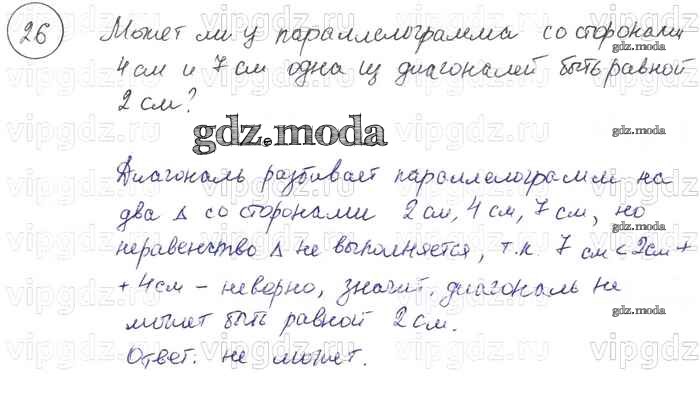 26 Может ли у параллелограмма со сторонами
4 см и 7 см одна из диагоналей быть равной
2 см?
gdz.moda
Диагональ разбивает параллелограмм на
два Δ со сторонами 2 см, 4 см, 7 см, но
неравенство Δ не выполняется, т.к. 7 см < 2см +
+ 4см - неверно, значит, диагональ не
может быть равной 2 см.
Ответ: не может.